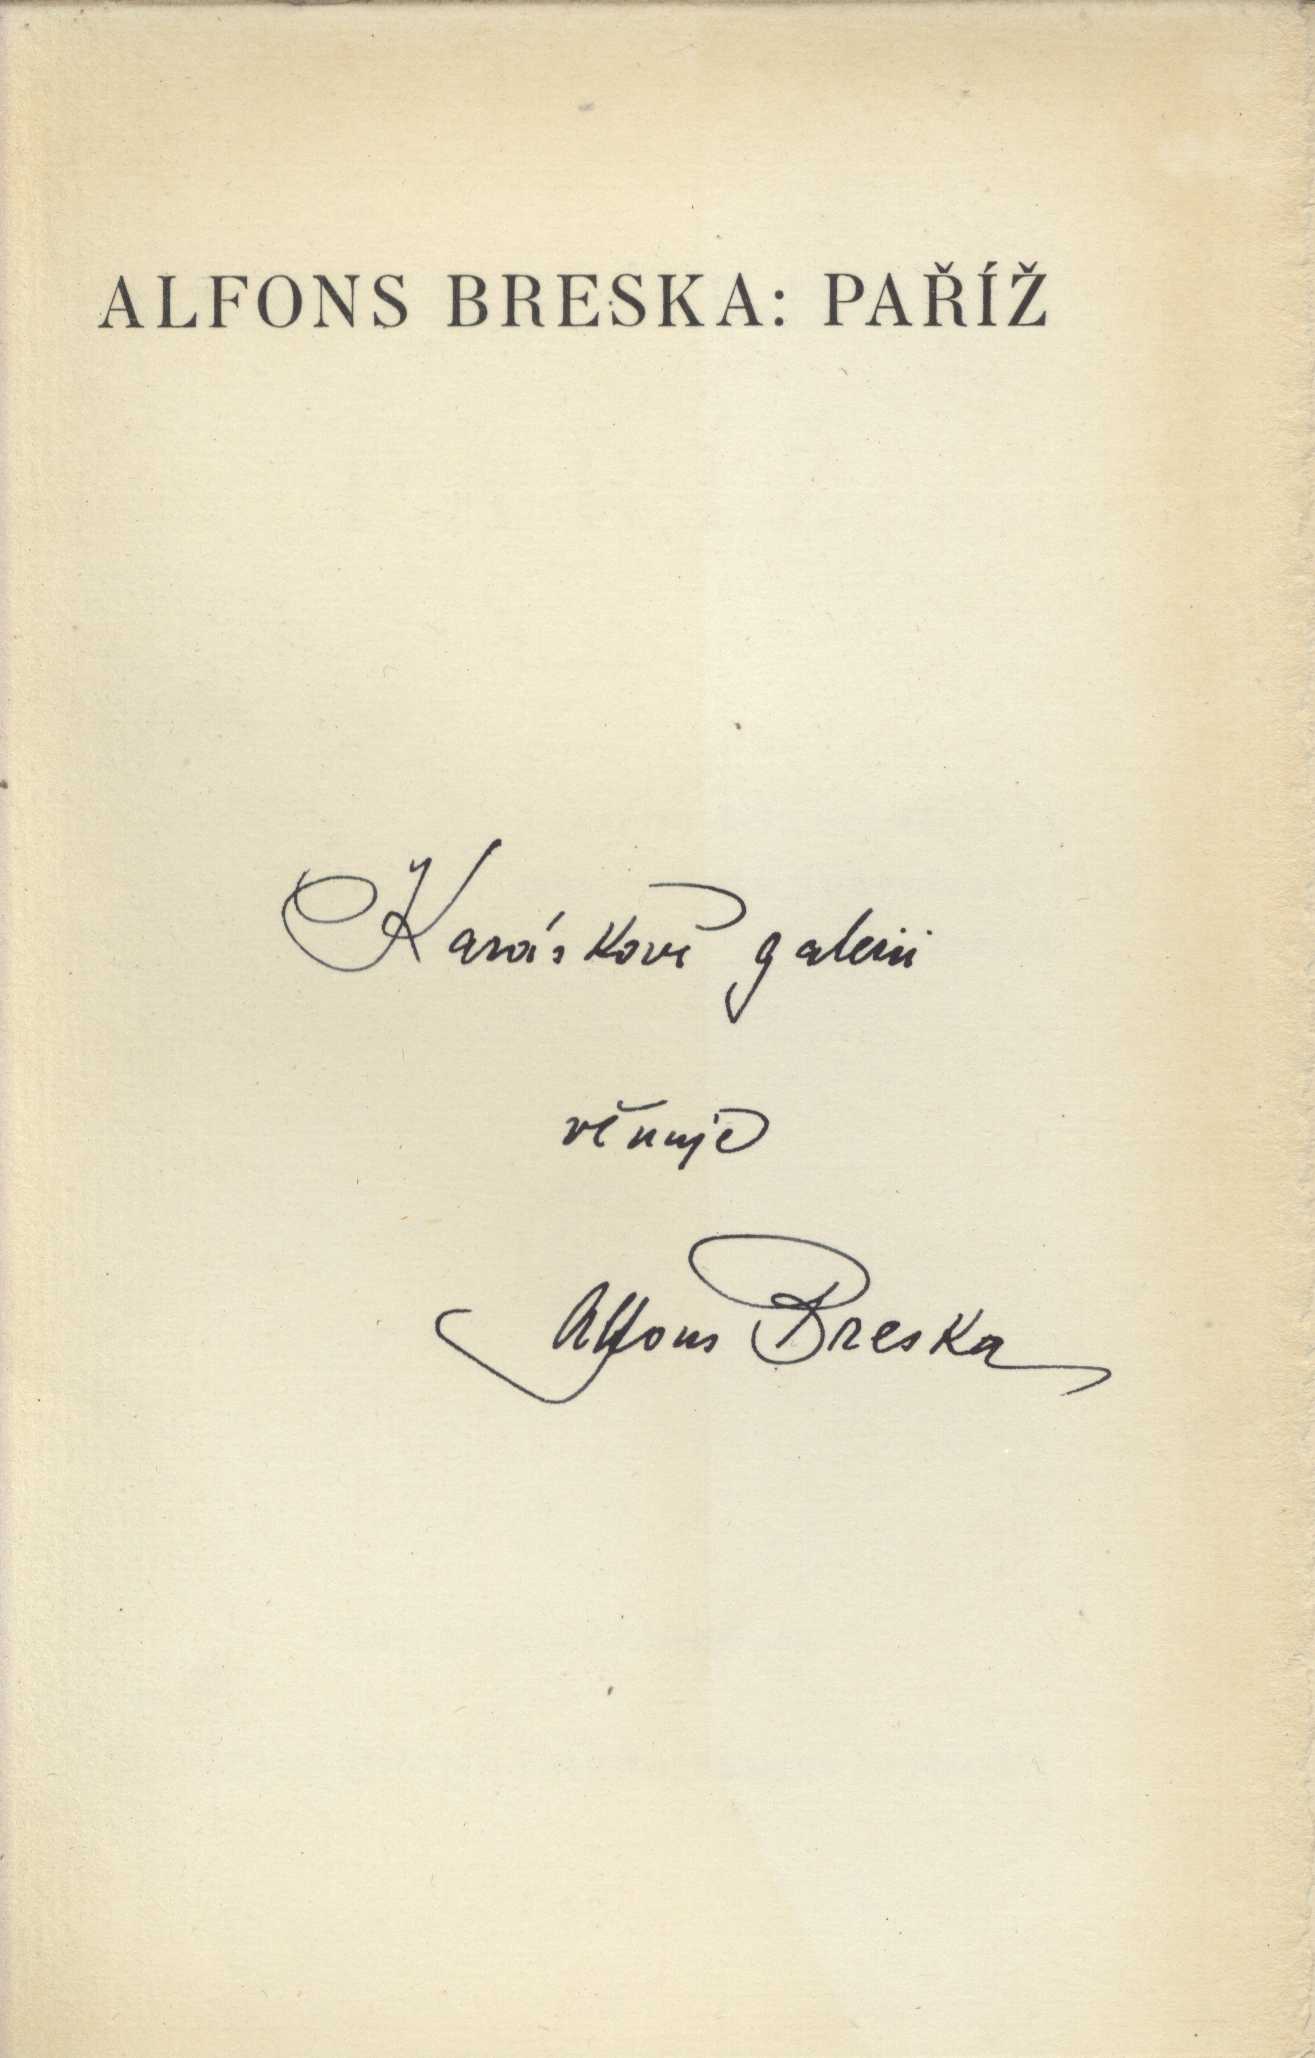 ALFONS BRESKA: PAŘÍŽ
Karáskově galerii
věnuje
Alfons Breska